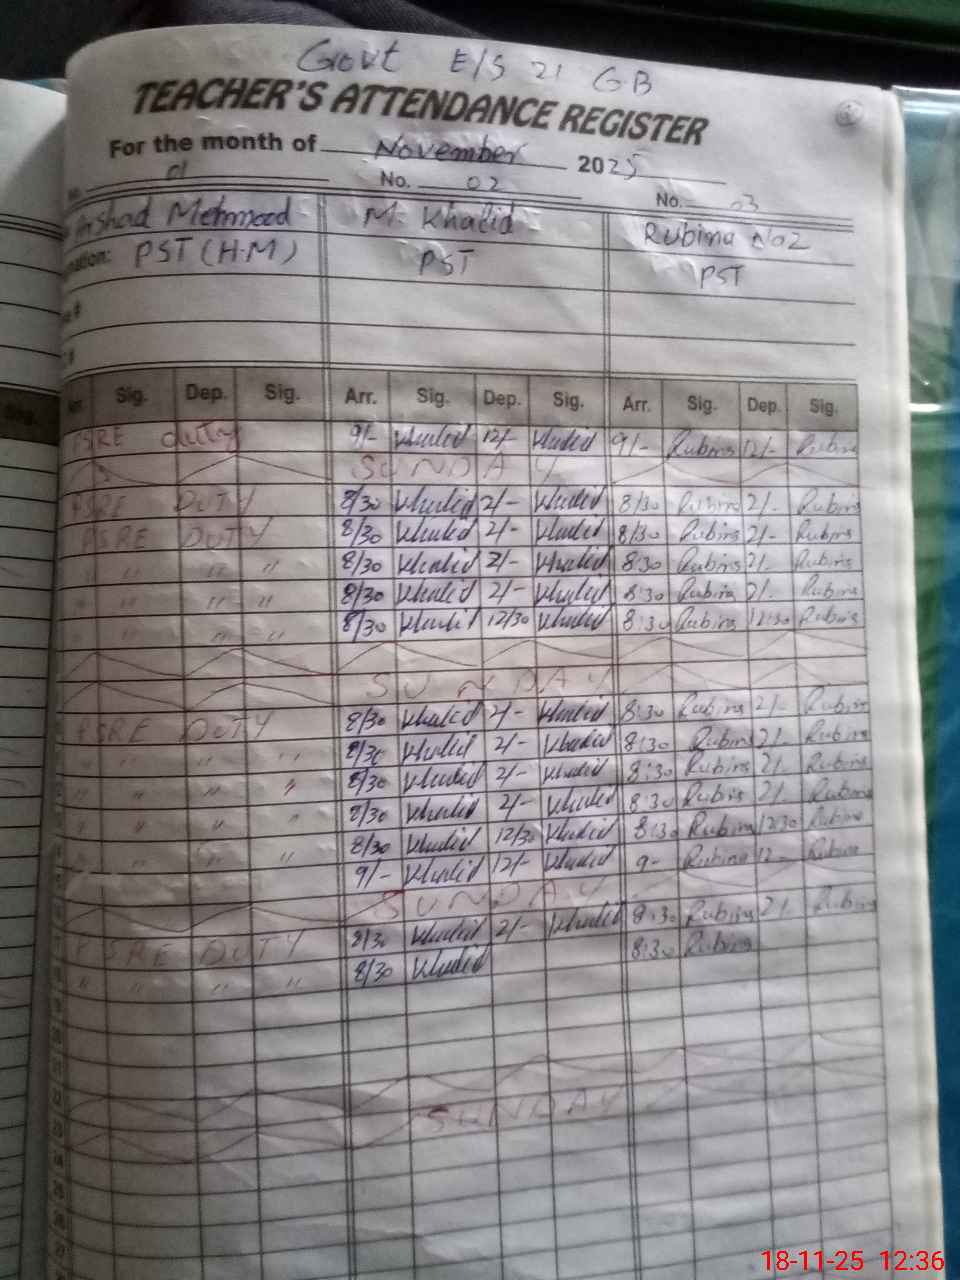 Govt E/S 21 GB
TEACHER'S ATTENDANCE REGISTER
For the month of November 2025
01 No. 02 No. 03
Arshad Mehmood M. Khalid Rubina Naz
PST (H.M) PST PST
Sig. Dep. Sig. Arr. Sig. Dep. Sig. Arr. Sig. Dep. Sig.
PSRE duty 9/- Khalid 12/- Khalid 9/- Rubina 12/- Rubina
SUNDAY
PSRE DUTY 8/30 Khalid 2/- Khalid 8/30 Rubina 2/- Rubina
PSRE DUTY 8/30 Khalid 2/- Khalid 8/30 Rubina 2/- Rubina
" " " " 8/30 Khalid 2/- Khalid 8:30 Rubina 2/- Rubina
" " " " 8/30 Khalid 2/- Khalid 8:30 Rubina 2/- Rubina
" " " " 8/30 Khalid 12/30 Khalid 8:30 Rubina 12:30 Rubina
SUNDAY
PSRE DUTY 8/30 Khalid 2/- Khalid 8:30 Rubina 2/- Rubina
" " " " 8/30 Khalid 2/- Khalid 8:30 Rubina 2/- Rubina
" " " " 8/30 Khalid 2/- Khalid 8:30 Rubina 2/- Rubina
" " " " 8/30 Khalid 2/- Khalid 8:30 Rubina 2/- Rubina
" " " " 8/30 Khalid 12/30 Khalid 8:30 Rubina 12:30 Rubina
9/- Khalid 12/- Khalid 9- Rubina 12- Rubina
SUNDAY
PSRE DUTY 8/30 Khalid 2/- Khalid 8:30 Rubina 2/- Rubina
" " " " 8/30 Khalid 8:30 Rubina
SUNDAY
18-11-25 12:36